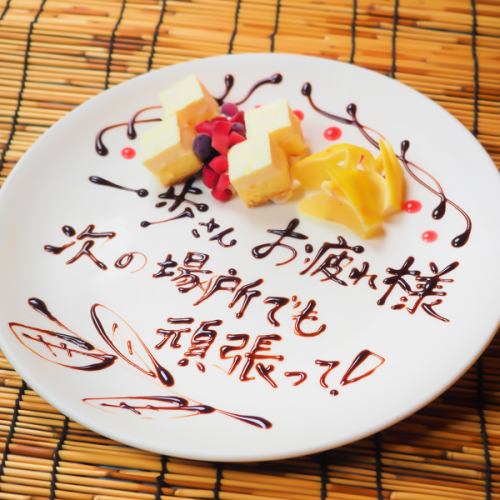 歩さん お疲れ様
次の場所でも
頑張って!